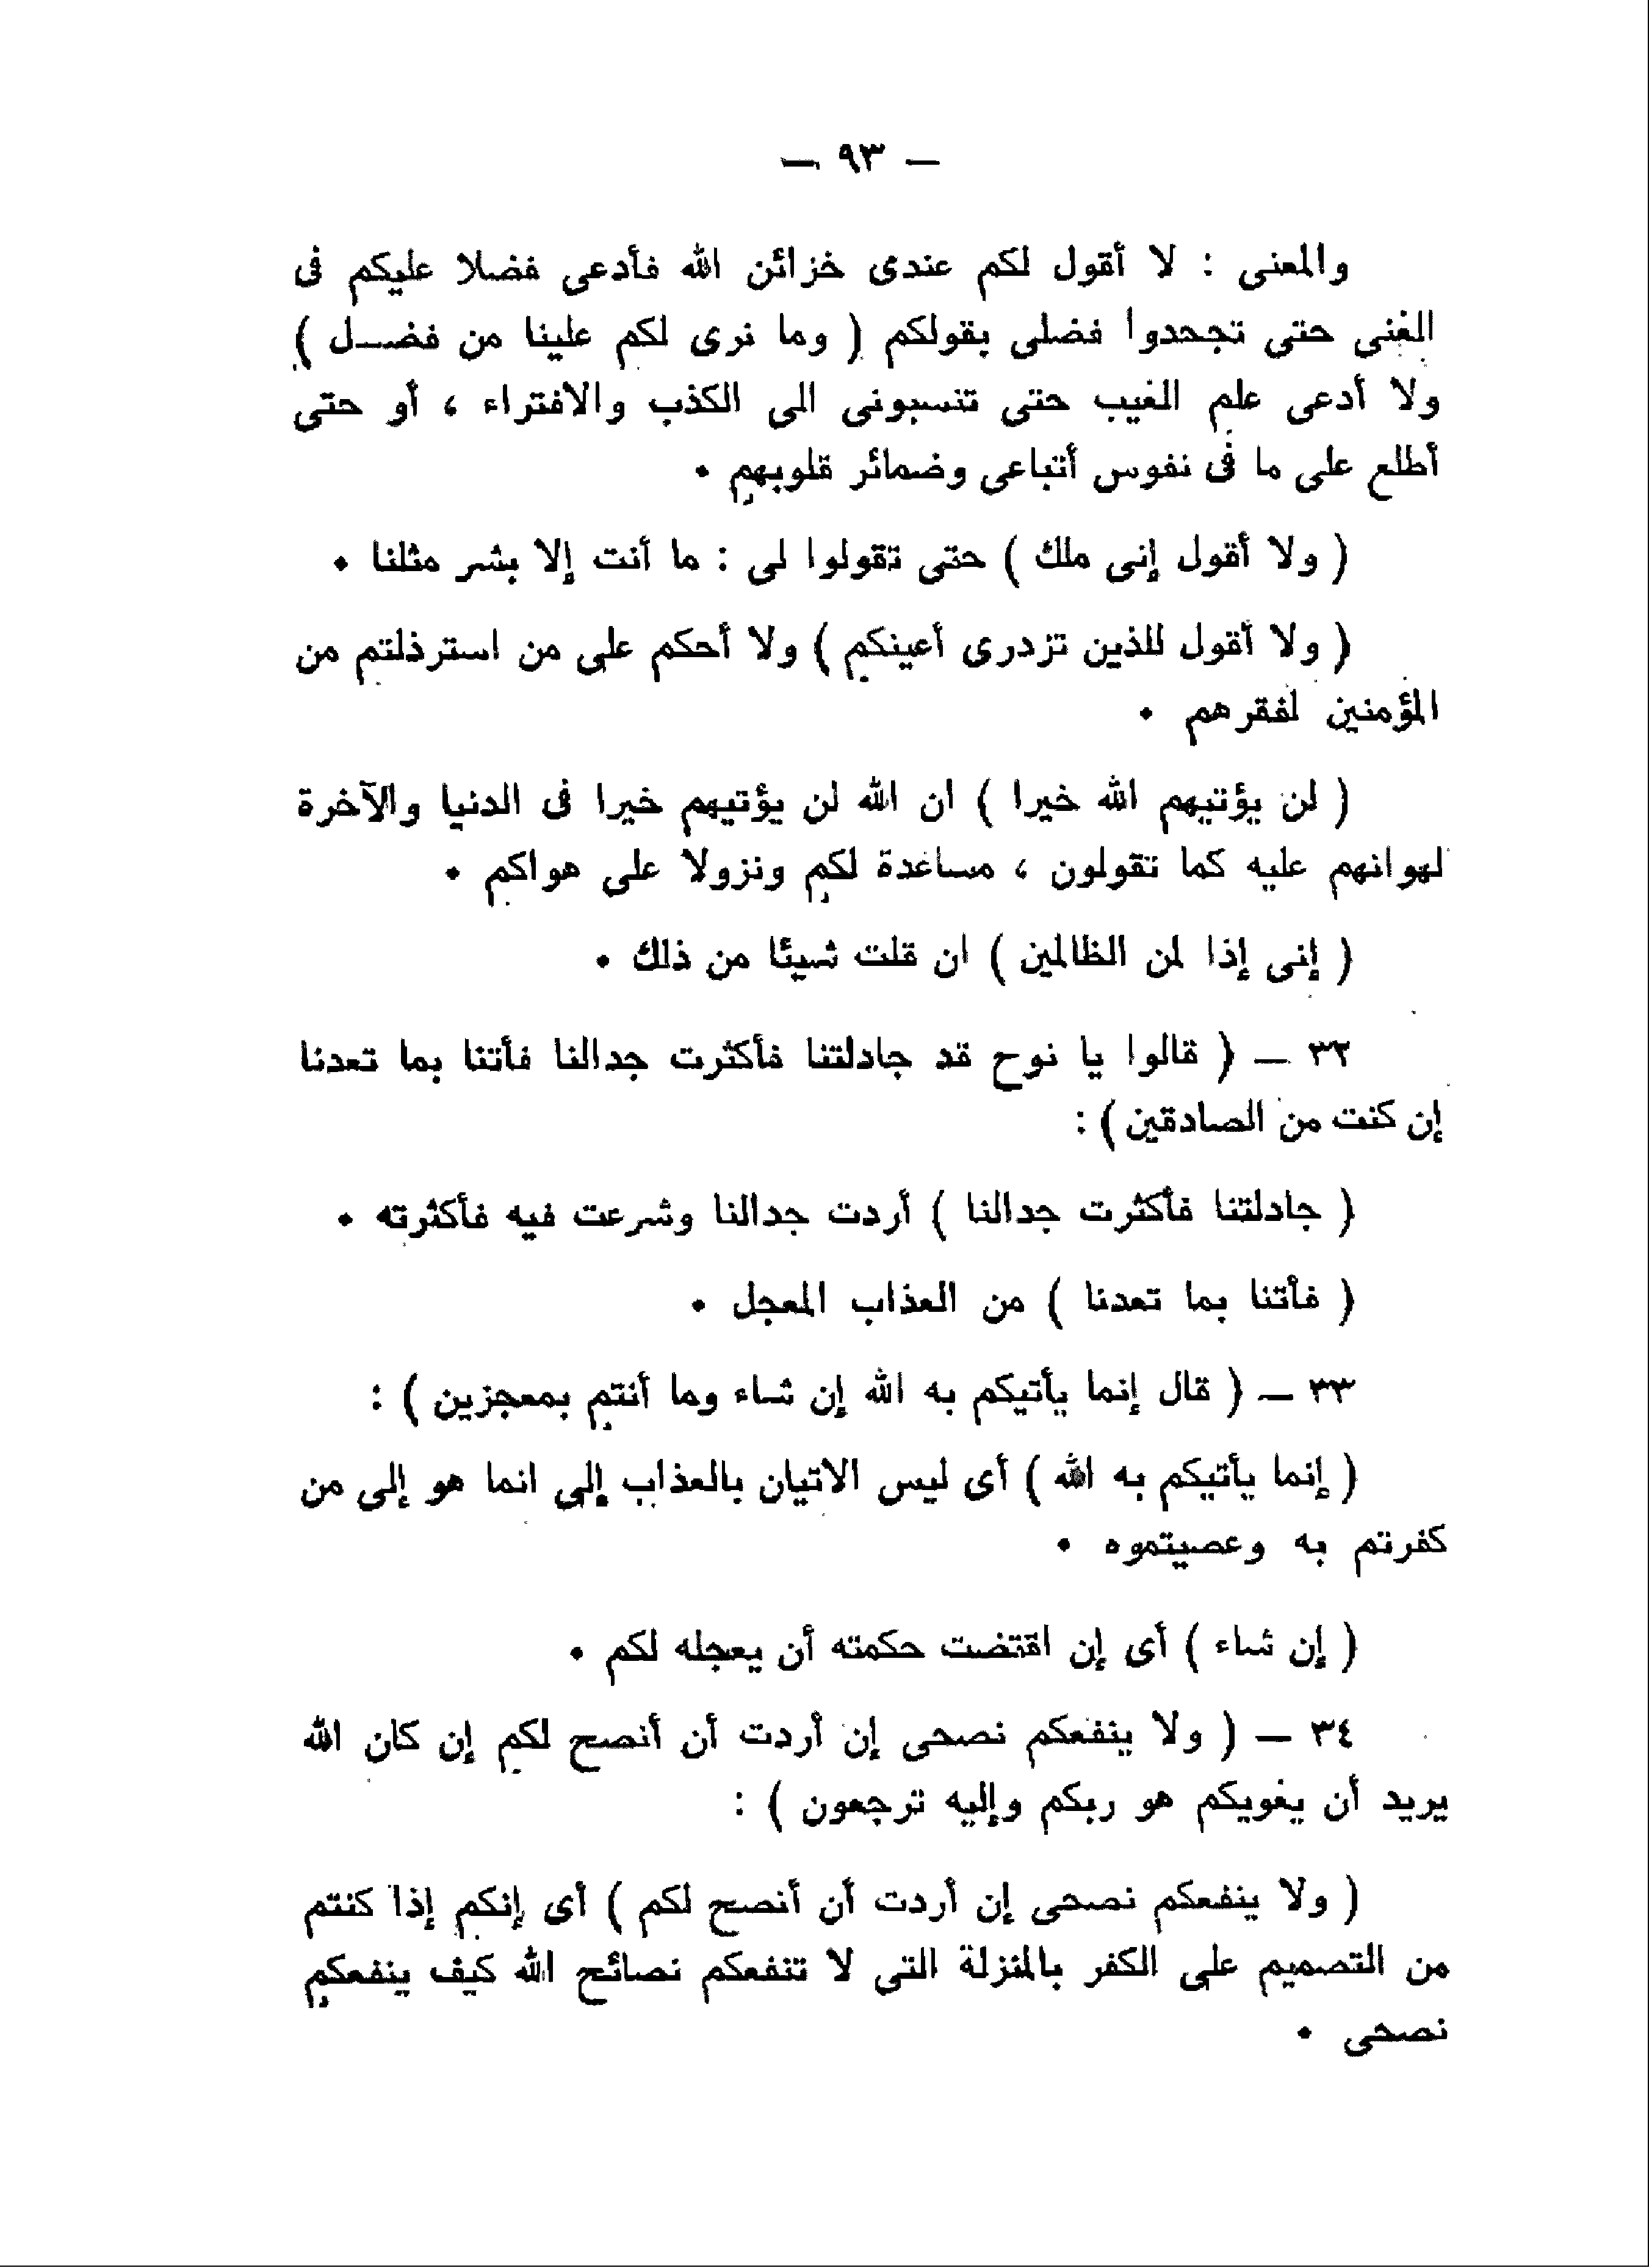 — ٩٣ —
والمعنى : لا أقول لكم عندى خزائن الله فأدعى فضلا عليكم فى
الغنى حتى تجحدوا فضلى بقولكم ( وما نرى لكم علينا من فضــل )
ولا أدعى علم الغيب حتى تنسبونى الى الكذب والافتراء ، أو حتى
أطلع على ما فى نفوس أتباعى وضمائر قلوبهم .
( ولا أقول إنى ملك ) حتى تقولوا لى : ما أنت إلا بشر مثلنا .
( ولا أقول للذين تزدرى أعينكم ) ولا أحكم على من استرذلتم من
المؤمنين لفقرهم .
( لن يؤتيهم الله خيرا ) ان الله لن يؤتيهم خيرا فى الدنيا والآخرة
لهوانهم عليه كما تقولون ، مساعدة لكم ونزولا على هواكم .
( إنى إذا لمن الظالمين ) ان قلت شيئا من ذلك .
٣٢ — ( قالوا يا نوح قد جادلتنا فأكثرت جدالنا فأتنا بما تعدنا
إن كنت من الصادقين ) :
( جادلتنا فأكثرت جدالنا ) أردت جدالنا وشرعت فيه فأكثرته .
( فأتنا بما تعدنا ) من العذاب المعجل .
٣٣ — ( قال إنما يأتيكم به الله إن شاء وما أنتم بمعجزين ) :
( إنما يأتيكم به الله ) أى ليس الاتيان بالعذاب إلى انما هو إلى من
كفرتم به وعصيتموه .
( إن شاء ) أى إن اقتضت حكمته أن يعجله لكم .
٣٤ — ( ولا ينفعكم نصحى إن أردت أن أنصح لكم إن كان الله
يريد أن يغويكم هو ربكم وإليه ترجعون ) :
( ولا ينفعكم نصحى إن أردت أن أنصح لكم ) أى إنكم إذا كنتم
من التصميم على الكفر بالمنزلة التى لا تنفعكم نصائح الله كيف ينفعكم
نصحى .